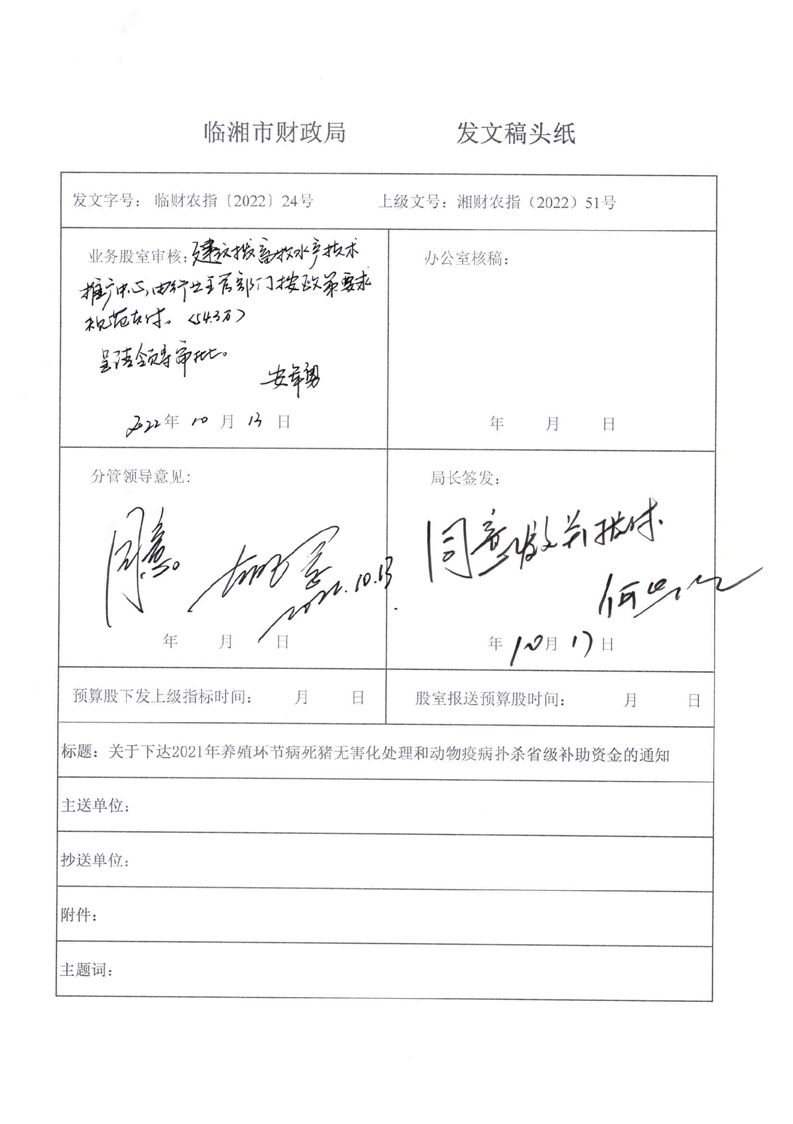 临湘市财政局 发文稿头纸
发文字号： 临财农指〔2022〕24号 上级文号：湘财农指（2022）51号
业务股室审核：建议拨畜牧水产技术
推广中心，由行业主管部门按政策要求
规范支付。（54.3万）
呈请领导审批。
2022年 10 月 13 日
办公室核稿：
年 月 日
分管领导意见：
同意。
2022.10.13
年 月 日
局长签发：
同意发文并拨付。
年 10月 17日
预算股下发上级指标时间： 月 日
股室报送预算股时间： 月 日
标题：关于下达2021年养殖环节病死猪无害化处理和动物疫病扑杀省级补助资金的通知
主送单位：
抄送单位：
附件：
主题词：